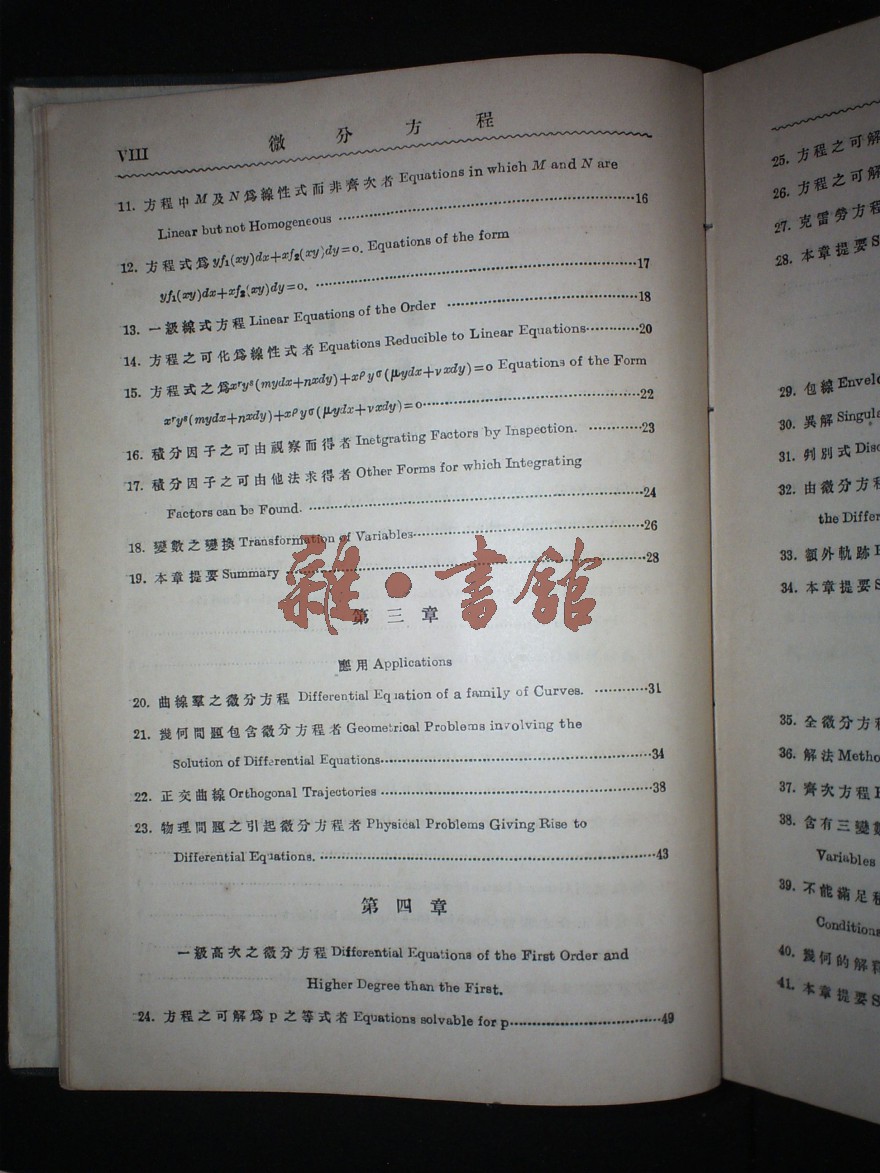 VIII 微分方程
11. 方程中M及N爲線性式而非齊次者 Equations in which M and N are
Linear but not Homogeneous ··················16
12. 方程式爲yf₁(xy)dx+xf₂(xy)dy=o. Equations of the form
yf₁(xy)dx+xf₂(xy)dy=o. ··················17
13. 一級線式方程 Linear Equations of the Order ··················18
14. 方程之可化爲線性式者 Equations Reducible to Linear Equations············20
15. 方程式之爲xʳyˢ(mydx+nxdy)+xᵖy^σ(μydx+νxdy)=o Equations of the Form
xʳyˢ(mydx+nxdy)+xᵖy^σ(μydx+νxdy)=o··················22
16. 積分因子之可由視察而得者 Inetgrating Factors by Inspection. ············23
17. 積分因子之可由他法求得者 Other Forms for which Integrating
Factors can be Found. ··················24
18. 變數之變換 Transformation of Variables··················26
19. 本章提要 Summary ··················28
雜·書舘
第三章
應用 Applications
20. 曲線羣之微分方程 Differential Equation of a family of Curves. ············31
21. 幾何問題包含微分方程者 Geometrical Problems involving the
Solution of Differential Equations··················34
22. 正交曲線 Orthogonal Trajectories ··················38
23. 物理問題之引起微分方程者 Physical Problems Giving Rise to
Differential Equations. ··················43
第四章
一級高次之微分方程 Differential Equations of the First Order and
Higher Degree than the First.
24. 方程之可解爲p之等式者 Equations solvable for p··················49
25. 方程之可解
26. 方程之可解
27. 克雷勞方程
28. 本章提要 S
29. 包線 Envelo
30. 異解 Singula
31. 判別式 Disc
32. 由微分方程
the Differ
33. 額外軌跡
34. 本章提要 S
35. 全微分方程
36. 解法 Metho
37. 齊次方程
38. 含有三變數
Variables
39. 不能滿足積
Conditions
40. 幾何的解釋
41. 本章提要 S